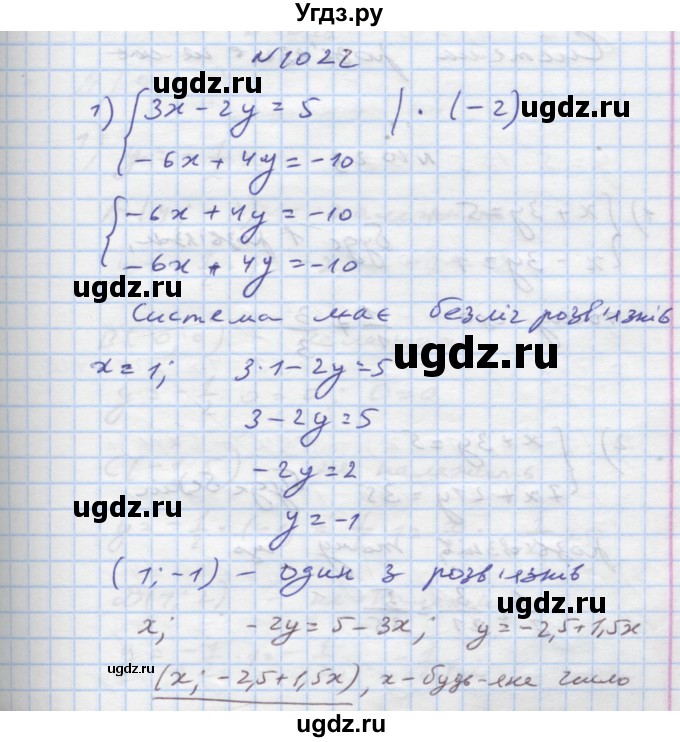 Угдз.ру
N1022
ugdz.ru
1) { 3x - 2y = 5 | · (-2)
ugdz.ru
- 6x + 4y = -10
ugdz.ru
{ - 6x + 4y = -10
- 6x + 4y = -10
ugdz.ru
ugdz.ru
Система має безліч розв'язків
ugdz.ru
x = 1; 3·1 - 2y = 5
3 - 2y = 5
- 2y = 2
ugdz.ru
ugdz.ru
y = -1
(1; -1) - один з розв'язків
ugdz.ru
x; - 2y = 5 - 3x; y = -2,5+1,5x
ugdz.ru
(x; -2,5+1,5x), x - будь-яке число
ugdz.ru